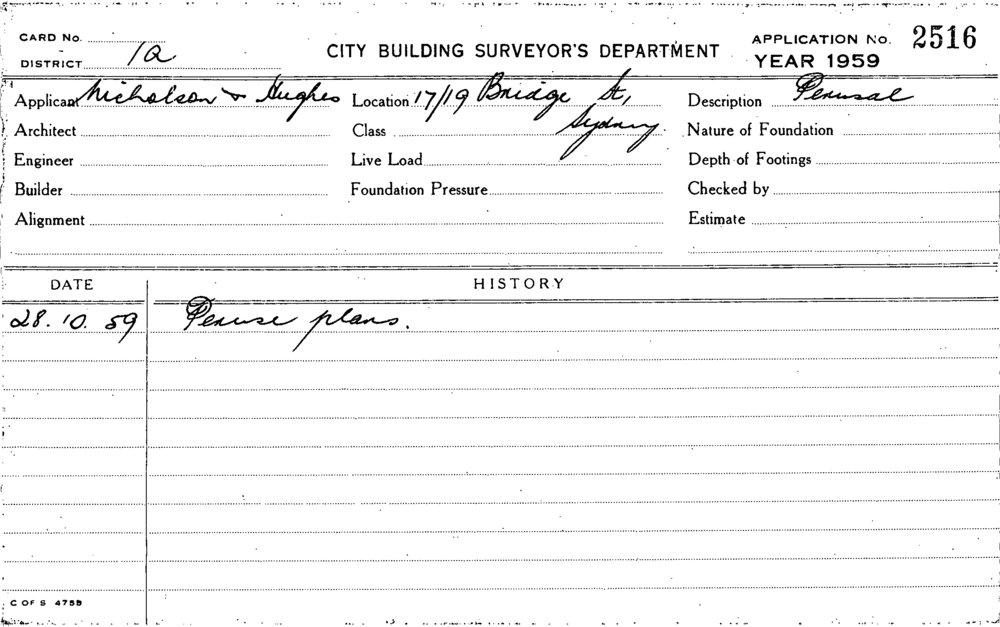 CARD No.
DISTRICT 1a
CITY BUILDING SURVEYOR'S DEPARTMENT
APPLICATION No. 2516
YEAR 1959
Applicant Nicholson & Hughes Location 17/19 Bridge St, Description Perusal
Sydney
Architect Class Nature of Foundation
Engineer Live Load Depth of Footings
Builder Foundation Pressure Checked by
Alignment Estimate
DATE HISTORY
28.10.59 Peruse plans.
C OF S 475B